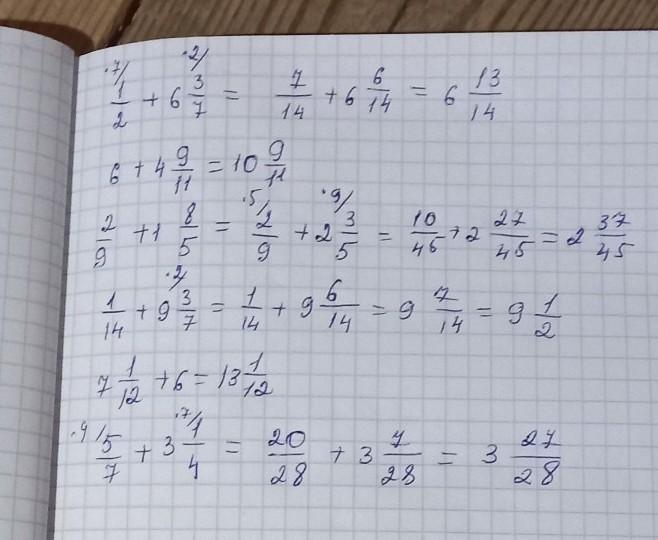 ·7/ 1/2 + 6 ·2/ 3/7 = 7/14 + 6 6/14 = 6 13/14
6 + 4 9/11 = 10 9/11
2/9 + 1 8/5 = ·5/ 2/9 + 2 ·9/ 3/5 = 10/45 + 2 27/45 = 2 37/45
1/14 + 9 ·2/ 3/7 = 1/14 + 9 6/14 = 9 7/14 = 9 1/2
7 1/12 + 6 = 13 1/12
·4/ 5/7 + 3 ·7/ 1/4 = 20/28 + 3 7/28 = 3 27/28